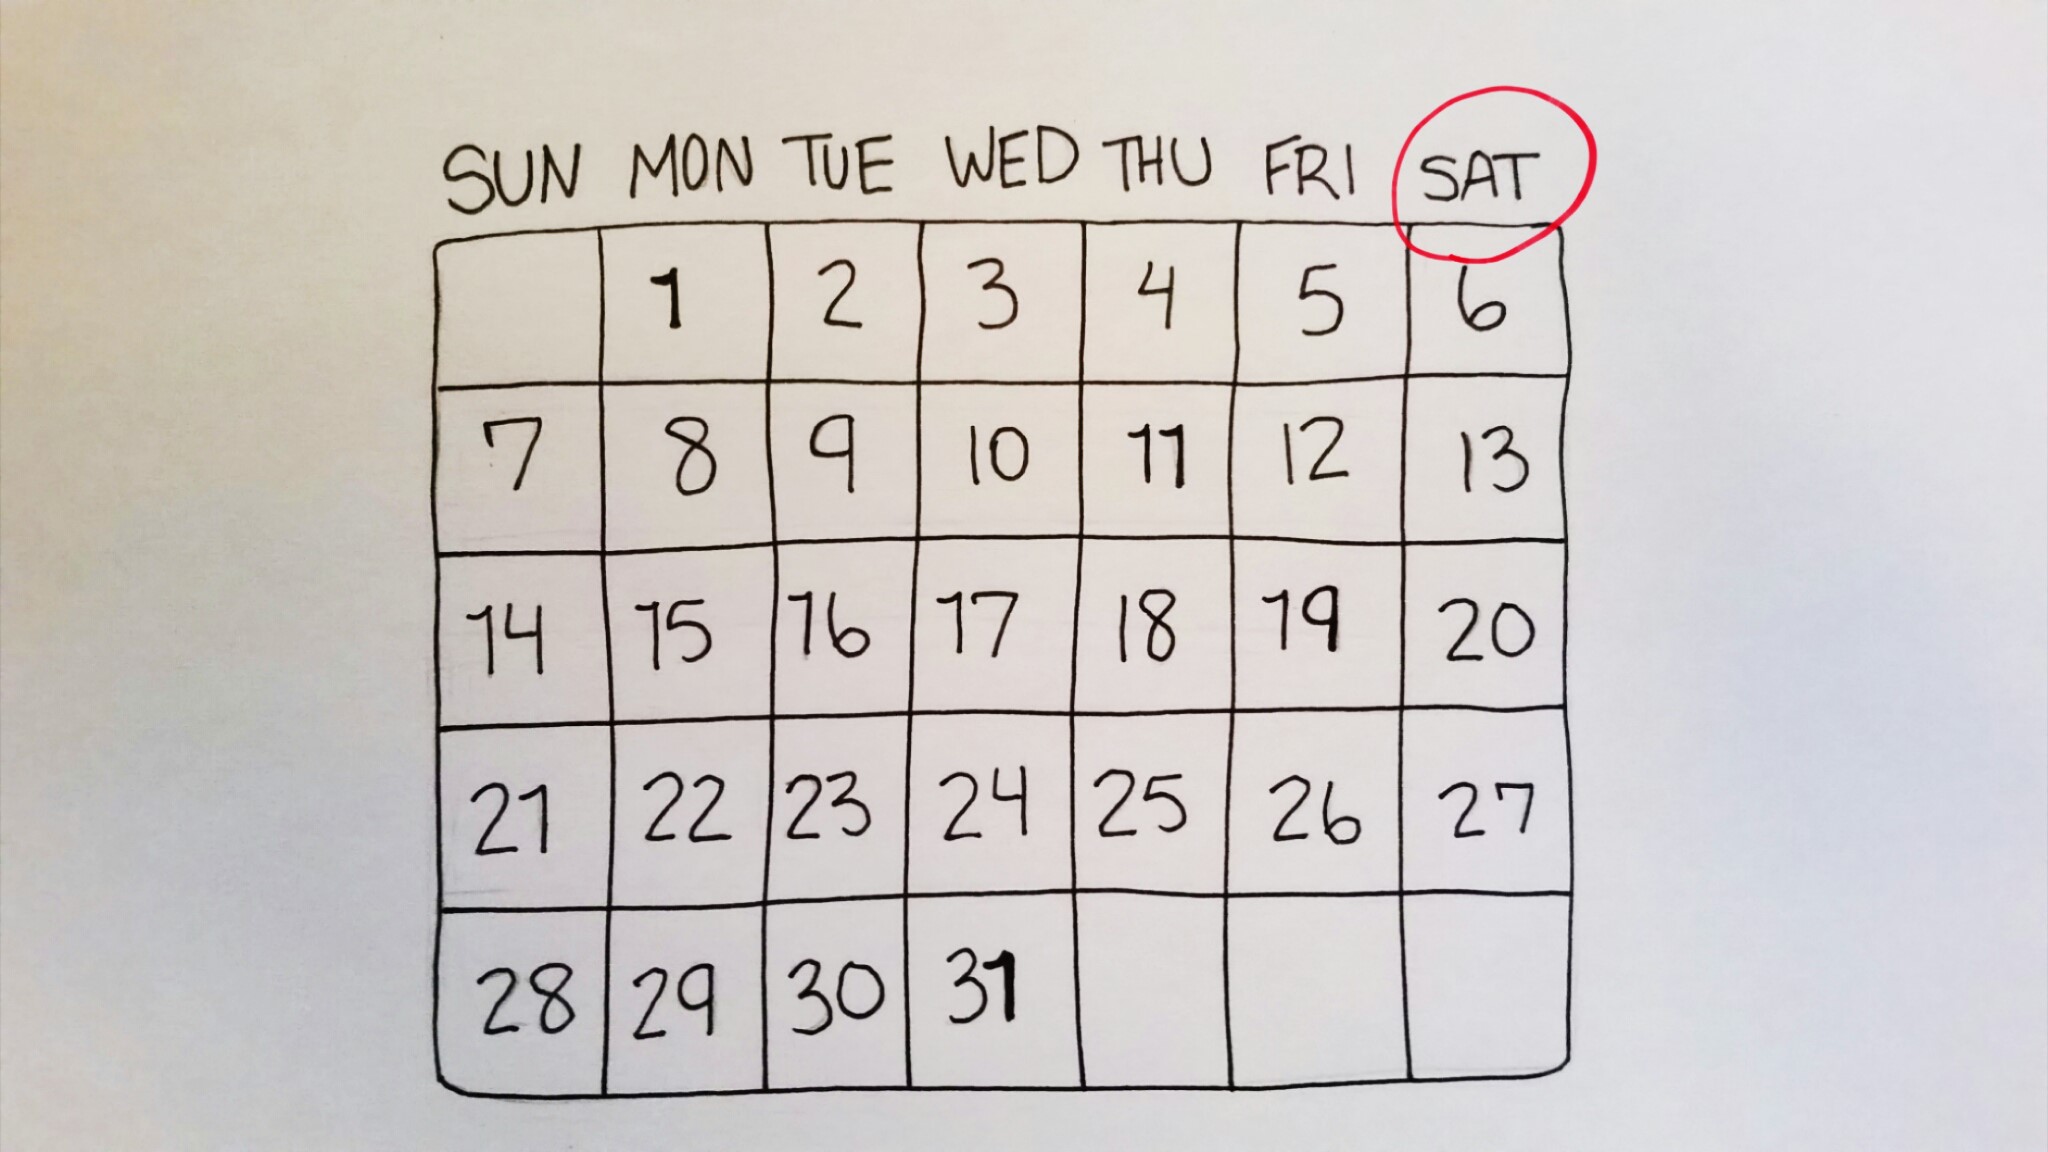 SUN MON TUE WED THU FRI SAT
1 2 3 4 5 6
7 8 9 10 11 12 13
14 15 16 17 18 19 20
21 22 23 24 25 26 27
28 29 30 31